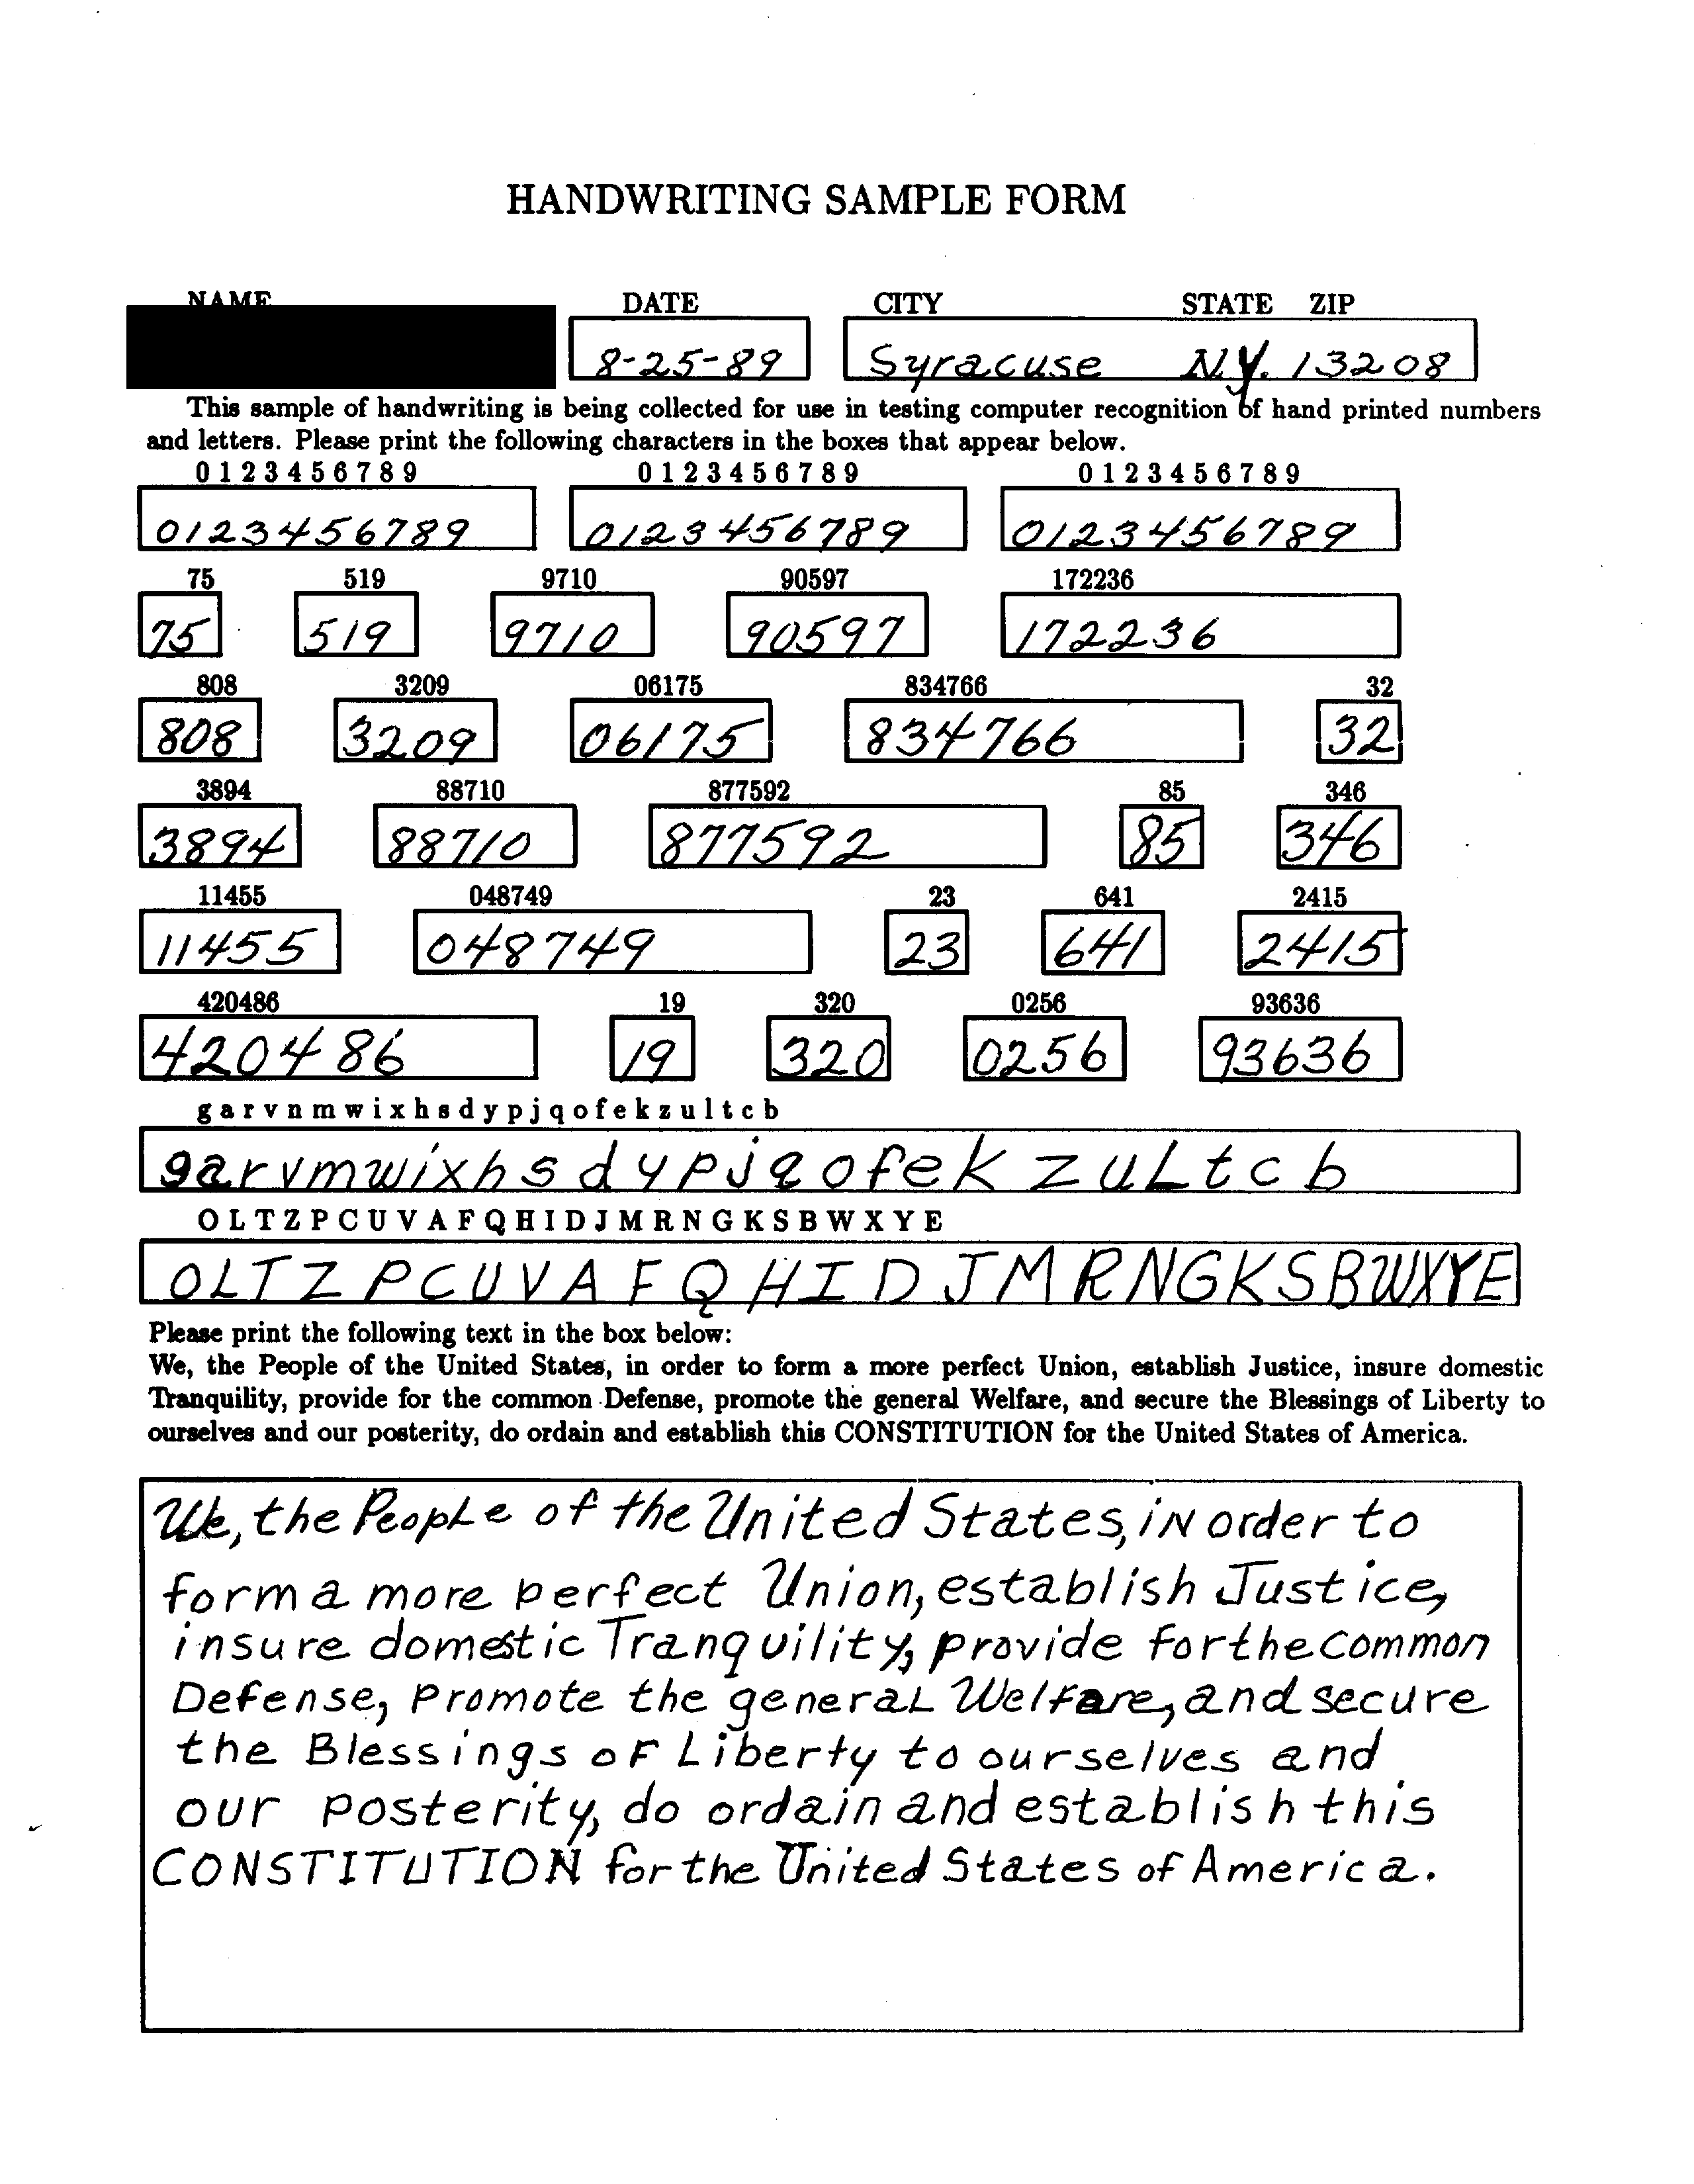 HANDWRITING SAMPLE FORM
NAME DATE CITY STATE ZIP
8-25-89 Syracuse N.Y. 13208
This sample of handwriting is being collected for use in testing computer recognition of hand printed numbers
and letters. Please print the following characters in the boxes that appear below.
0 1 2 3 4 5 6 7 8 9 0 1 2 3 4 5 6 7 8 9 0 1 2 3 4 5 6 7 8 9
0123456789 0123456789 0123456789
75 519 9710 90597 172236
75 519 9710 90597 172236
808 3209 06175 834766 32
808 3209 06175 834766 32
3894 88710 877592 85 346
3894 88710 877592 85 346
11455 048749 23 641 2415
11455 048749 23 641 2415
420486 19 320 0256 93636
420486 19 320 0256 93636
g a r v n m w i x h s d y p j q o f e k z u l t c b
g a r v m w i x h s d y p j q o f e k z u L t c b
O L T Z P C U V A F Q H I D J M R N G K S B W X Y E
O L T Z P C U V A F Q H I D J M R N G K S B W X Y E
Please print the following text in the box below:
We, the People of the United States, in order to form a more perfect Union, establish Justice, insure domestic
Tranquility, provide for the common Defense, promote the general Welfare, and secure the Blessings of Liberty to
ourselves and our posterity, do ordain and establish this CONSTITUTION for the United States of America.
We, the PeopLe of the United States, iN order to
form a more perfect Union, establish Justice,
insure domestic Tranquility, provide for the common
Defense, Promote the generaL Welfare, and secure
the Blessings oF Liberty to ourselves and
our posterity, do ordain and establish this
CONSTITUTION for the United States of America.